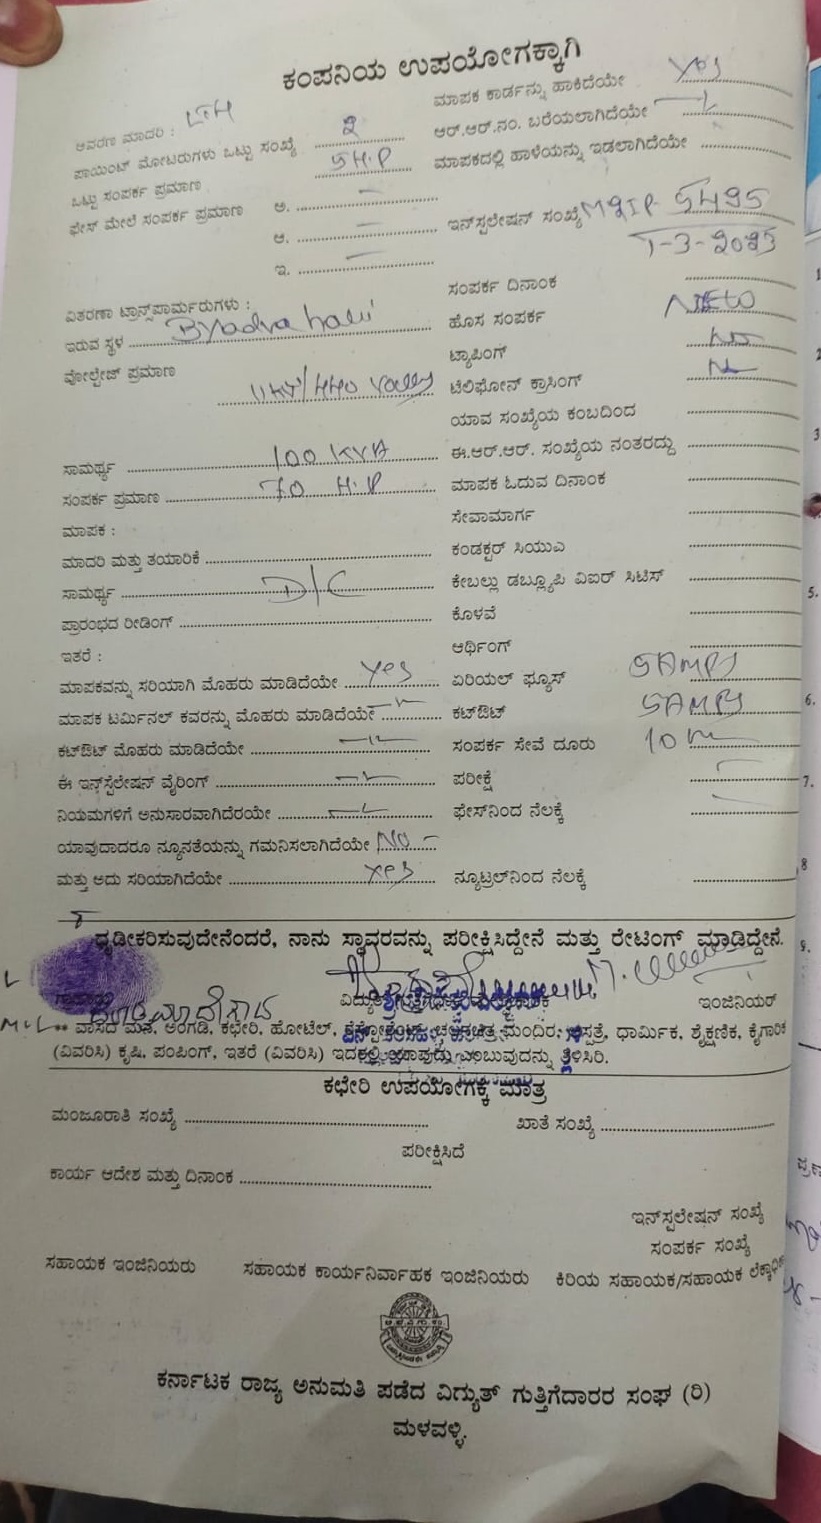 ಕಂಪನಿಯ ಉಪಯೋಗಕ್ಕಾಗಿ
ಆವರಣ ಮಾದರಿ :
ಮಾಪಕ ಕಾರ್ಡನ್ನು ಹಾಕಿದೆಯೇ Yes
ಪಾಯಿಂಟ್ ಮೋಟರುಗಳು ಒಟ್ಟು ಸಂಖ್ಯೆ 2
ಆರ್.ಆರ್.ನಂ. ಬರೆಯಲಾಗಿದೆಯೇ
ಒಟ್ಟು ಸಂಪರ್ಕ ಪ್ರಮಾಣ 5H.P
ಮಾಪಕದಲ್ಲಿ ಹಾಳೆಯನ್ನು ಇಡಲಾಗಿದೆಯೇ
ಫೇಸ್ ಮೇಲೆ ಸಂಪರ್ಕ ಪ್ರಮಾಣ ಅ.
ಆ.
ಇನ್‌ಸ್ಪಲೇಷನ್ ಸಂಖ್ಯೆ 5495
ಇ.
1-3-2023
ವಿತರಣಾ ಟ್ರಾನ್ಸ್‌ಫಾರ್ಮರುಗಳು :
ಸಂಪರ್ಕ ದಿನಾಂಕ
ಇರುವ ಸ್ಥಳ
ಹೊಸ ಸಂಪರ್ಕ
ವೋಲ್ಟೇಜ್ ಪ್ರಮಾಣ
ಟ್ಯಾಪಿಂಗ್
ಟೆಲಿಫೋನ್ ಕ್ರಾಸಿಂಗ್
ಯಾವ ಸಂಖ್ಯೆಯ ಕಂಬದಿಂದ
ಸಾಮರ್ಥ್ಯ 100 KVA
ಈ.ಆರ್.ಆರ್. ಸಂಖ್ಯೆಯ ನಂತರದ್ದು
ಸಂಪರ್ಕ ಪ್ರಮಾಣ 70 H.P
ಮಾಪಕ ಓದುವ ದಿನಾಂಕ
ಮಾಪಕ :
ಸೇವಾಮಾರ್ಗ
ಮಾದರಿ ಮತ್ತು ತಯಾರಿಕೆ
ಕಂಡಕ್ಟರ್ ಸಿಯುಎ
ಸಾಮರ್ಥ್ಯ D/C
ಕೇಬಲ್ಲು ಡಬ್ಲ್ಯೂಪಿ ವಿಐರ್ ಸಿಟಿಸ್
ಪ್ರಾರಂಭದ ರೀಡಿಂಗ್
ಕೊಳವೆ
ಇತರೆ :
ಆರ್ಥಿಂಗ್
ಮಾಪಕವನ್ನು ಸರಿಯಾಗಿ ಮೊಹರು ಮಾಡಿದೆಯೇ Yes
ಏರಿಯಲ್ ಫ್ಯೂಸ್ 5AMPS
ಮಾಪಕ ಟರ್ಮಿನಲ್ ಕವರನ್ನು ಮೊಹರು ಮಾಡಿದೆಯೇ
ಕಟ್‌ಔಟ್ 5AMPS
ಕಟ್‌ಔಟ್ ಮೊಹರು ಮಾಡಿದೆಯೇ
ಸಂಪರ್ಕ ಸೇವೆ ದೂರು 10 m
ಈ ಇನ್‌ಸ್ಪೆಲೇಷನ್ ವೈರಿಂಗ್
ಪರೀಕ್ಷೆ
ನಿಯಮಗಳಿಗೆ ಅನುಸಾರವಾಗಿದೆರಯೇ
ಫೇಸ್‌ನಿಂದ ನೆಲಕ್ಕೆ
ಯಾವುದಾದರೂ ನ್ಯೂನತೆಯನ್ನು ಗಮನಿಸಲಾಗಿದೆಯೇ No
ಮತ್ತು ಅದು ಸರಿಯಾಗಿದೆಯೇ Yes
ನ್ಯೂಟ್ರಲ್‌ನಿಂದ ನೆಲಕ್ಕೆ
ಧೃಡೀಕರಿಸುವುದೇನೆಂದರೆ, ನಾನು ಸ್ಥಾವರವನ್ನು ಪರೀಕ್ಷಿಸಿದ್ದೇನೆ ಮತ್ತು ರೇಟಿಂಗ್ ಮಾಡಿದ್ದೇನೆ.
ಇಂಜಿನಿಯರ್
** ವಾಸದ ಮನೆ, ಅಂಗಡಿ, ಕಛೇರಿ, ಹೋಟೆಲ್, ಮಂದಿರ, ಧಾರ್ಮಿಕ, ಶೈಕ್ಷಣಿಕ, ಕೈಗಾರಿಕ
(ವಿವರಿಸಿ) ಕೃಷಿ, ಪಂಪಿಂಗ್, ಇತರೆ (ವಿವರಿಸಿ) ಇದರಲ್ಲಿ ಯಾವುದು ಎಂಬುವುದನ್ನು ತಿಳಿಸಿರಿ.
ಕಛೇರಿ ಉಪಯೋಗಕ್ಕೆ ಮಾತ್ರ
ಮಂಜೂರಾತಿ ಸಂಖ್ಯೆ
ಖಾತೆ ಸಂಖ್ಯೆ
ಪರೀಕ್ಷಿಸಿದೆ
ಕಾರ್ಯ ಆದೇಶ ಮತ್ತು ದಿನಾಂಕ
ಇನ್‌ಸ್ಪಲೇಷನ್ ಸಂಖ್ಯೆ
ಸಂಪರ್ಕ ಸಂಖ್ಯೆ
ಸಹಾಯಕ ಇಂಜಿನಿಯರು ಸಹಾಯಕ ಕಾರ್ಯನಿರ್ವಾಹಕ ಇಂಜಿನಿಯರು ಕಿರಿಯ ಸಹಾಯಕ/ಸಹಾಯಕ
ಕರ್ನಾಟಕ ರಾಜ್ಯ ಅನುಮತಿ ಪಡೆದ ವಿದ್ಯುತ್ ಗುತ್ತಿಗೆದಾರರ ಸಂಘ (ರಿ)
ಮಳವಳ್ಳಿ.